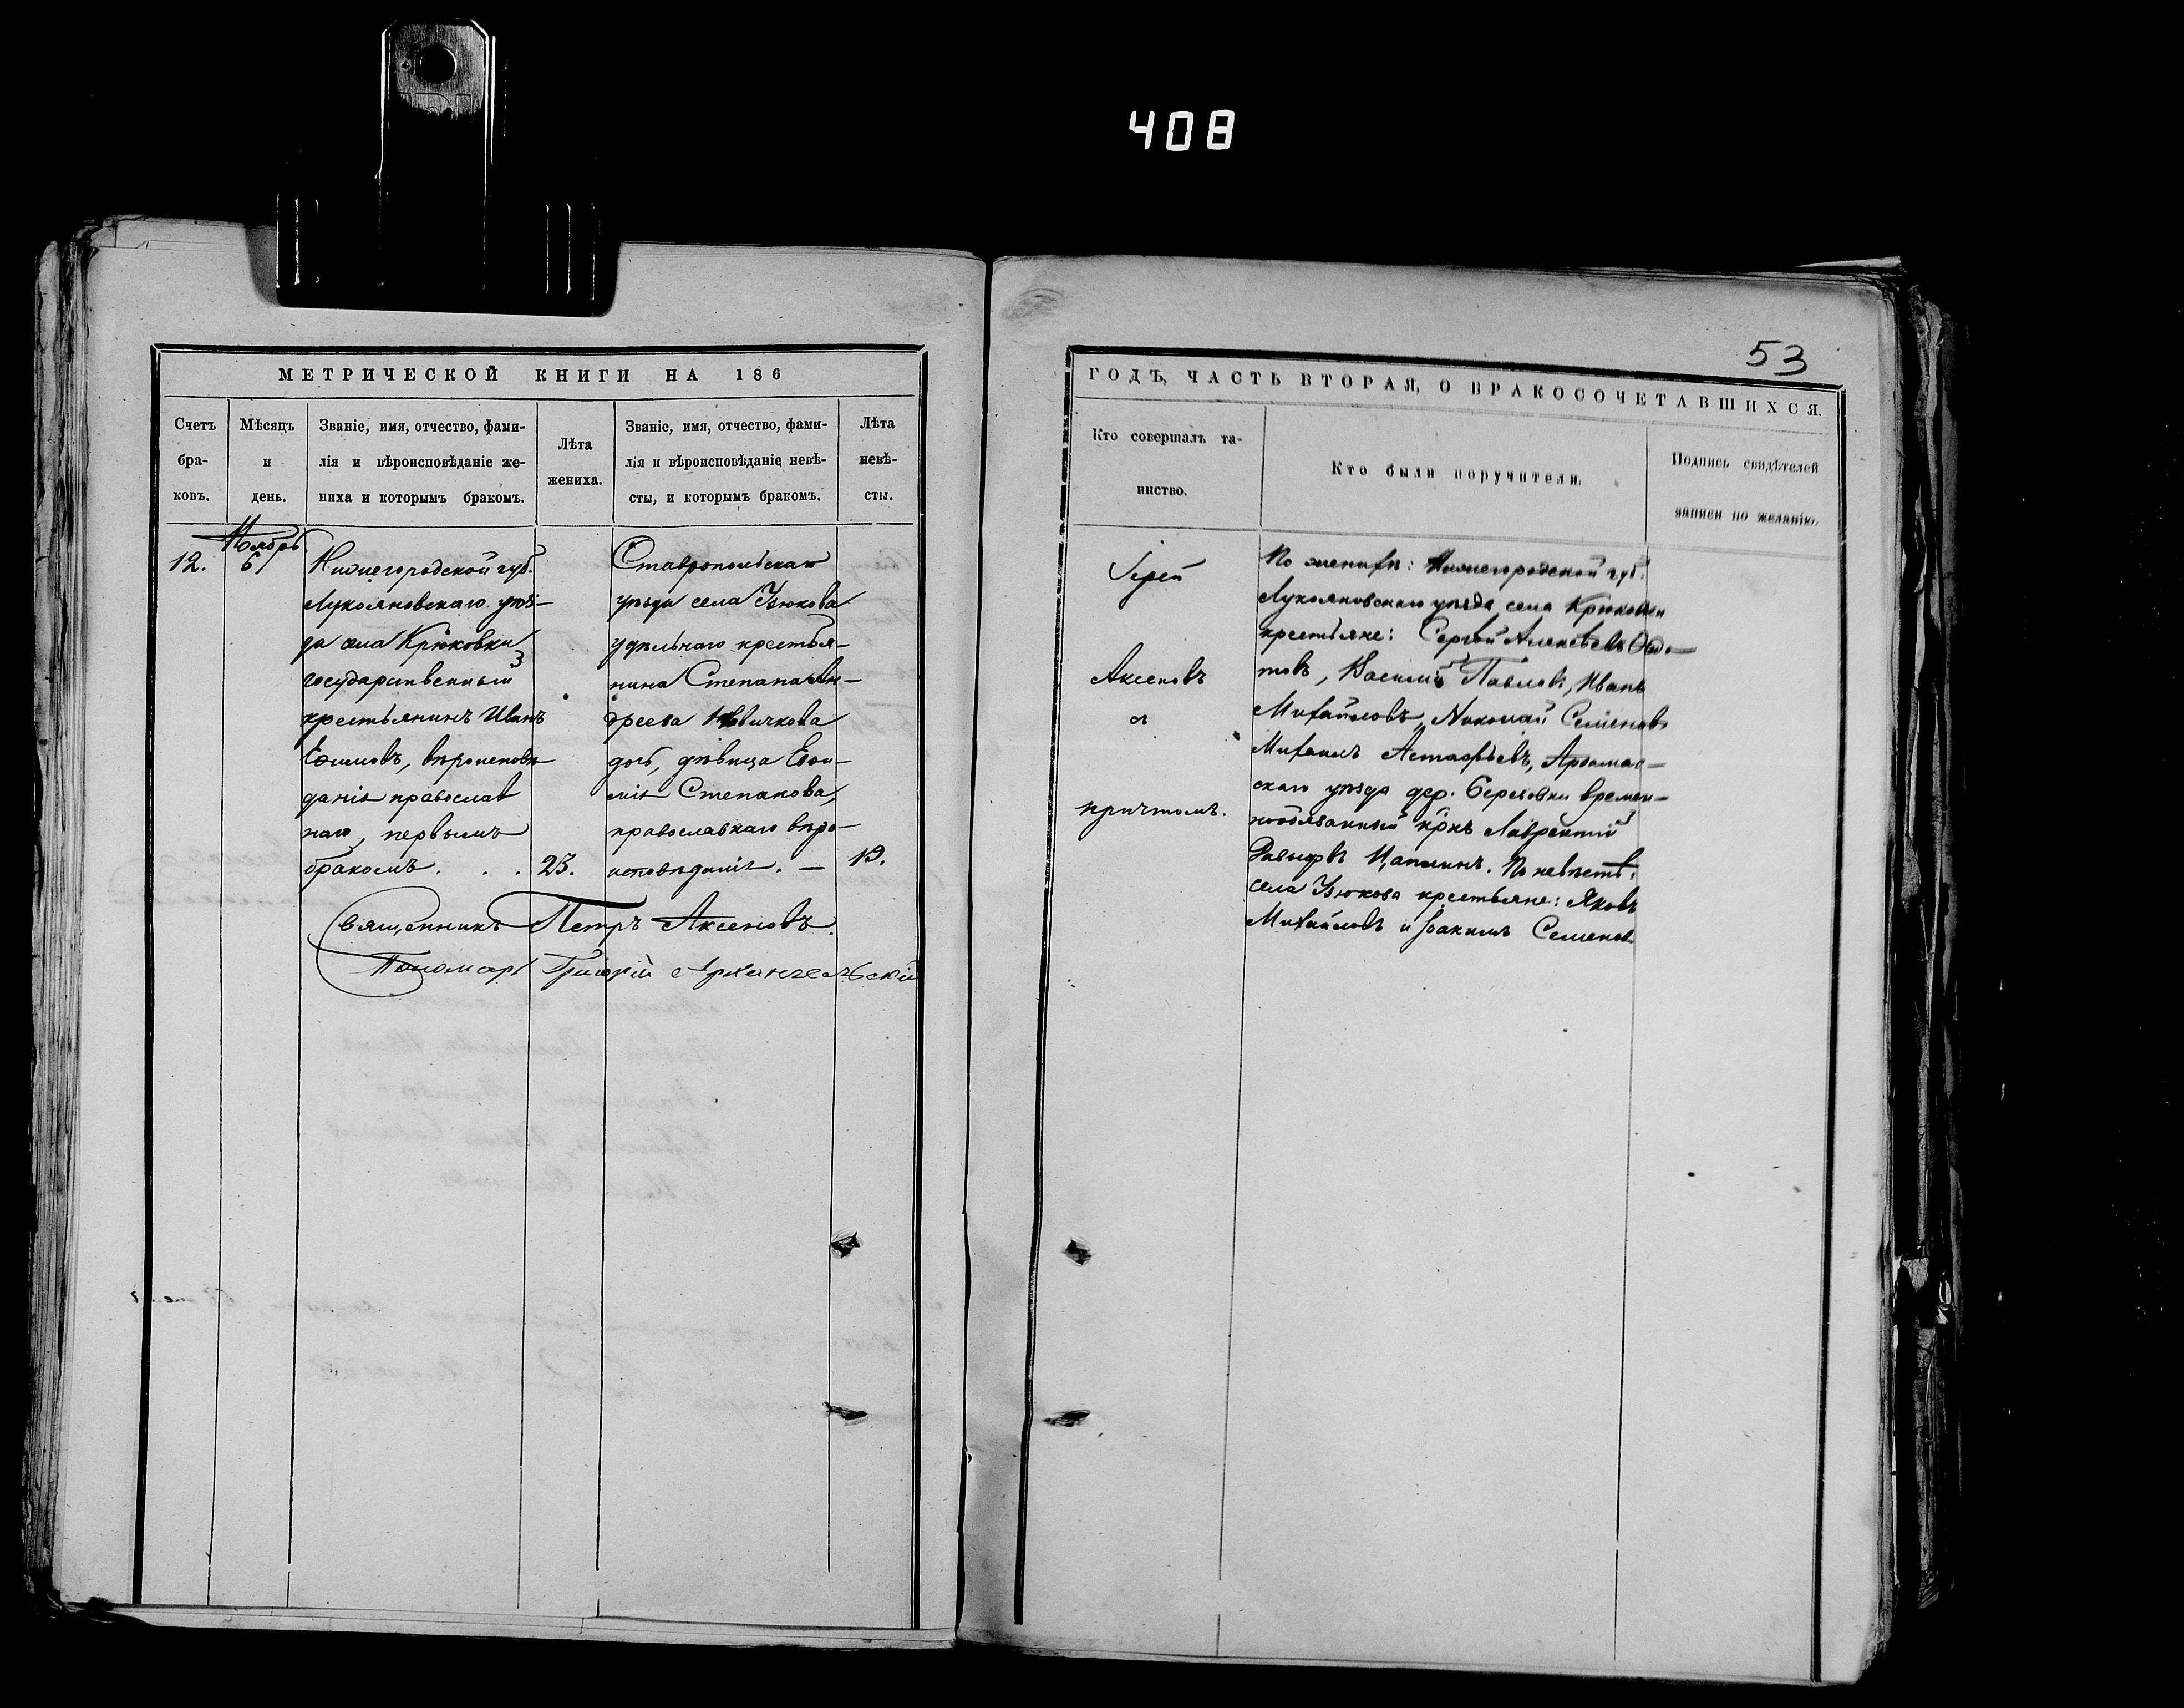 408
53
МЕТРИЧЕСКОЙ КНИГИ НА 186
Счетъ бра-ковъ.
Мѣсяцъ и день.
Званіе, имя, отчество, фами-
лія и вѣроисповѣданіе же-
ниха и которымъ бракомъ.
Лѣта жениха.
Званіе, имя, отчество, фами-
лія и вѣроисповѣданіе невѣ-
сты, и которымъ бракомъ.
Лѣта невѣ-сты.
12.
Ноябрь
6
Нижегородской губ.
Лукояновскаго уѣз-
да села Крюковки
государственный
крестьянинъ Иванъ
Ефимовъ, вѣроисповѣ
данія православ
наго, первымъ
бракомъ. . .
23.
Ставропольскаго
уѣзда села Узюкова
удѣльнаго крестья-
нина Степана Ан-
дреева
дочь, дѣвица Евѳи-
мія Степанова,
православнаго вѣро-
исповѣданія. —
19.
Священникъ Петръ Аксеновъ.
Пономарь Григорій Архангельскій
ГОДЪ, ЧАСТЬ ВТОРАЯ, О БРАКОСОЧЕТАВШИХСЯ.
Кто совершалъ та-
инство.
Кто были поручители.
Подпись свидѣтелей
записи по желанію.
Іерей
Аксеновъ
съ
причтомъ.
По женихѣ: Нижегородской губ.
Лукояновскаго уѣзда села Крюковки
крестьяне: Сергѣй Алексѣевъ Ѳедо-
товъ, Василій Павловъ, Иванъ
Михайловъ, Николай Семеновъ
Михаилъ Астафьевъ, Арзамас-
скаго уѣзда дер. Березовки времен-
нообязанный кр̃нъ Лаврентій
Давыдовъ Цаплинъ. По невѣстѣ:
села Узюкова крестьяне: Яковъ
Михайловъ и Іоакимъ Семеновъ